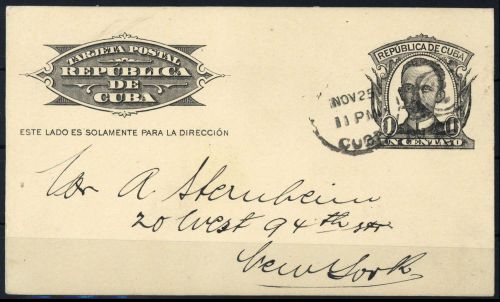 TARJETA POSTAL
REPÚBLICA
DE
CUBA
ESTE LADO ES SOLAMENTE PARA LA DIRECCIÓN
REPÚBLICA DE CUBA
UN CENTAVO
NOV 25
11 PM
CUBA
A Sternheim
20 West 94th str
New York